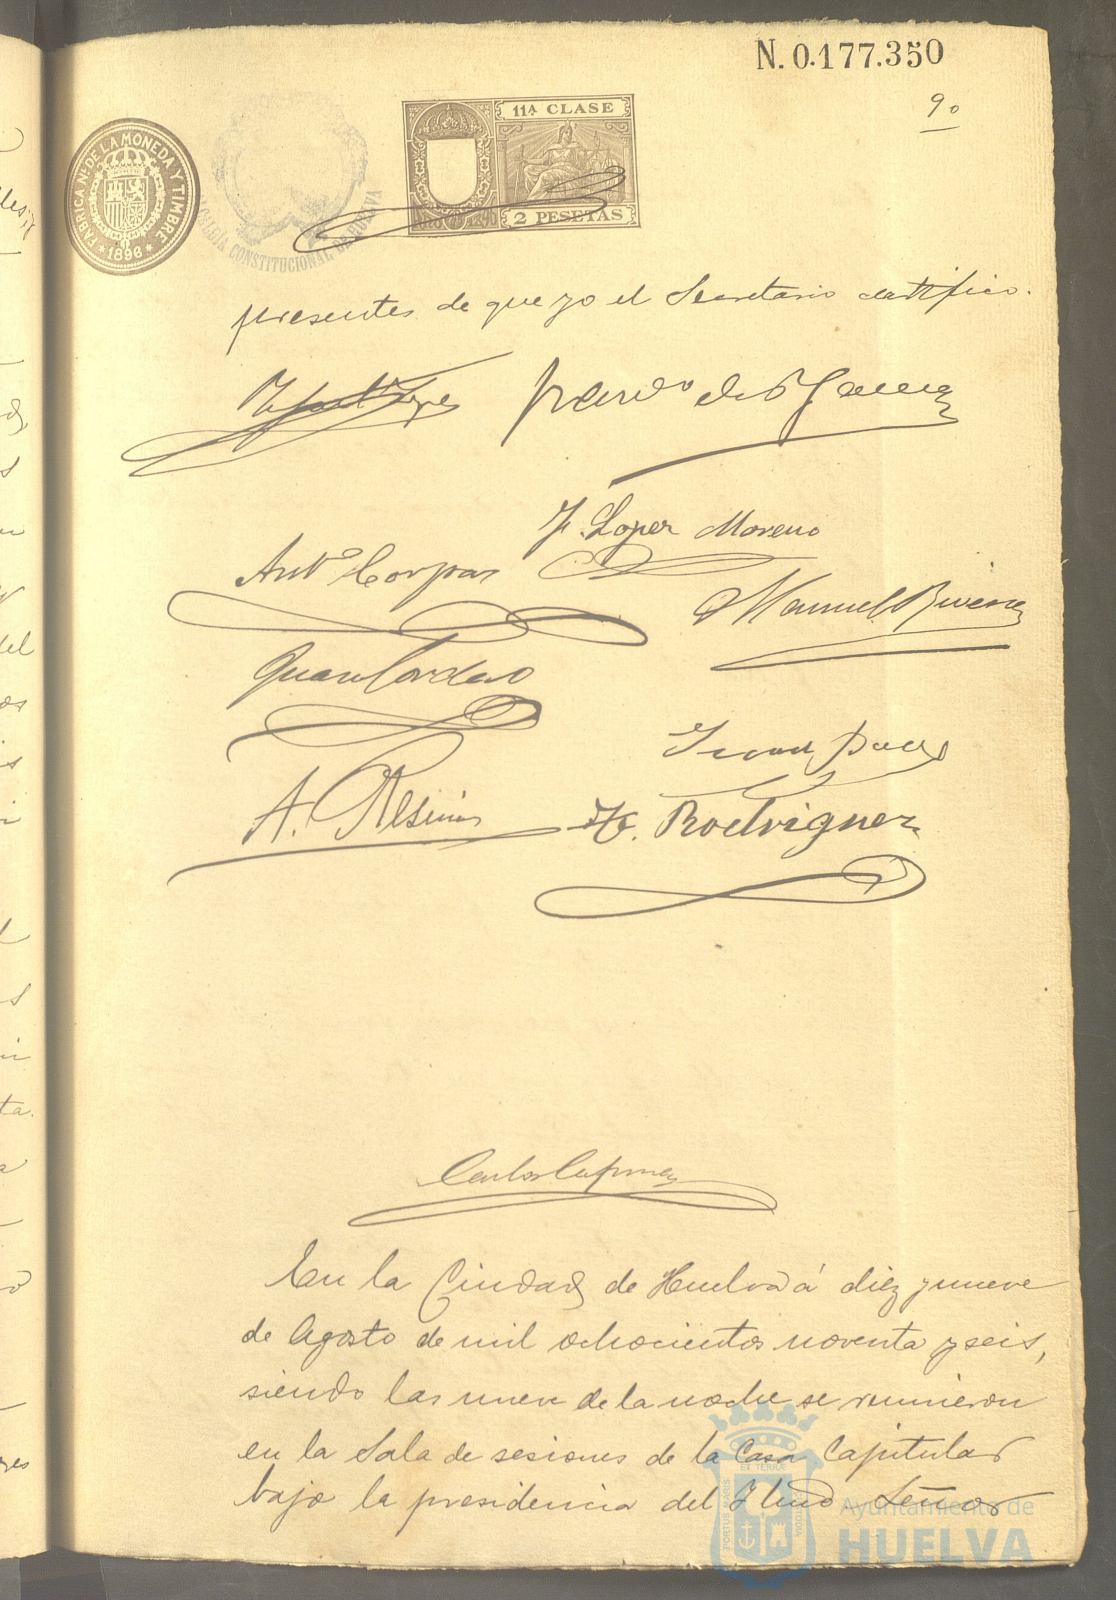 N. 0.177.350
90
FABRICA NL. DE LA MONEDA Y TIMBRE
* 1896 *
CONSTITUCIONAL DE HUELVA
11ª CLASE
2 PESETAS
presentes de que yo el Secretario certifico.
F. Lopez Moreno
Antº Corpas
Manuel Rivera
Juan Cordero
A. Resinas
H. Rodriguez
En la Ciudad de Huelva á diez y nueve
de Agosto de mil ochocientos noventa y seis,
siendo las nueve de la noche se reunieron
en la Sala de sesiones de la Casa Capitular
bajo la presidencia del Ilmo. Señor
PORTUS MARIS
ET TERRAE
CUSTODIA
Ayuntamiento de
HUELVA